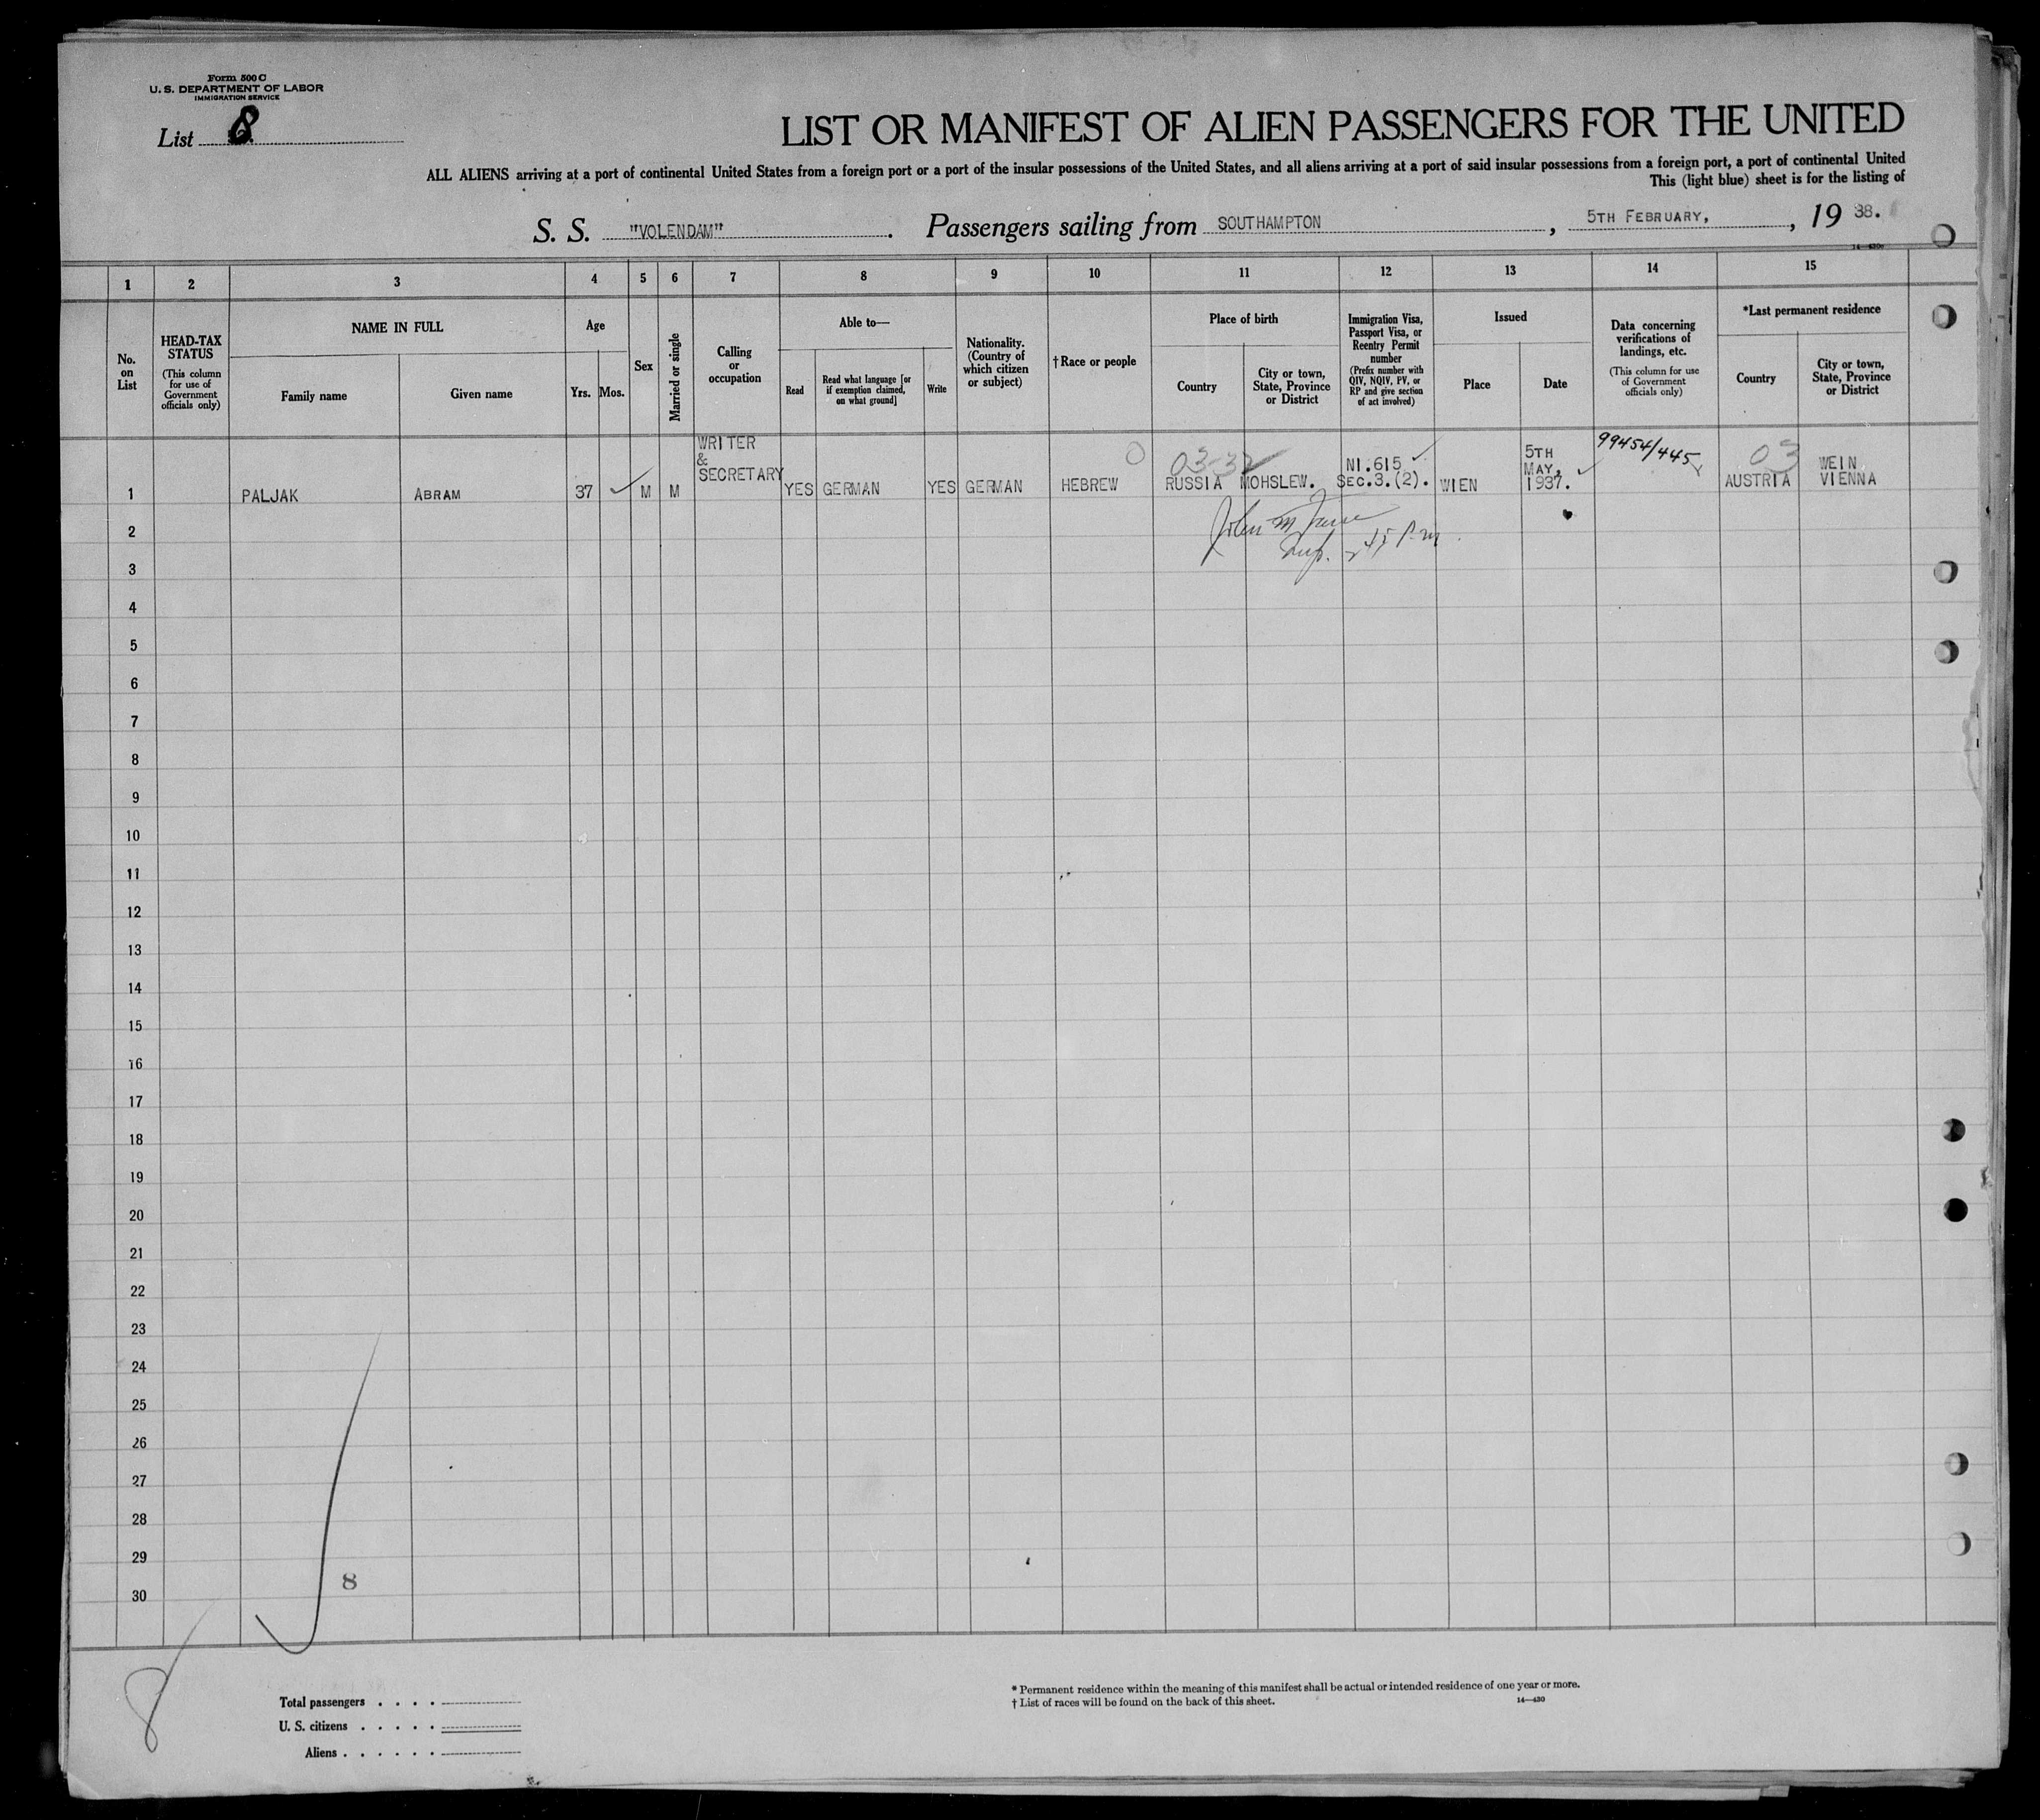 Form 500 C
U. S. DEPARTMENT OF LABOR
IMMIGRATION SERVICE
List 8
LIST OR MANIFEST OF ALIEN PASSENGERS FOR THE UNITED
ALL ALIENS arriving at a port of continental United States from a foreign port or a port of the insular possessions of the United States, and all aliens arriving at a port of said insular possessions from a foreign port, a port of continental United
This (light blue) sheet is for the listing of
S. S. "VOLENDAM" . Passengers sailing from SOUTHAMPTON , 5TH FEBRUARY, , 19 38.
1 2 3 4 5 6 7 8 9 10 11 12 13 14 15
No. on List
HEAD-TAX STATUS
(This column for use of Government officials only)
NAME IN FULL
Family name
Given name
Age
Yrs.
Mos.
Sex
Married or single
Calling or occupation
Able to—
Read
Read what language [or if exemption claimed, on what ground]
Write
Nationality. (Country of which citizen or subject)
† Race or people
Place of birth
Country
City or town, State, Province or District
Immigration Visa, Passport Visa, or Reentry Permit number
(Prefix number with QIV, NQIV, PV, or RP and give section of act involved)
Issued
Place
Date
Data concerning verifications of landings, etc.
(This column for use of Government officials only)
*Last permanent residence
Country
City or town, State, Province or District
1
PALJAK
ABRAM
37
M
M
WRITER
&
SECRETARY
YES
GERMAN
YES
GERMAN
HEBREW
0
03-32
RUSSIA
MOHSLEW.
NI.615
SEC.3.(2).
WIEN
5TH
MAY,
1937.
99454/445
03
AUSTRIA
WEIN
VIENNA
John M
2 45 P.m
2
3
4
5
6
7
8
9
10
11
12
13
14
15
16
17
18
19
20
21
22
23
24
25
26
27
28
29
30
8
8
Total passengers . . . .
U. S. citizens . . . . .
Aliens . . . . . .
* Permanent residence within the meaning of this manifest shall be actual or intended residence of one year or more.
† List of races will be found on the back of this sheet.
14—430